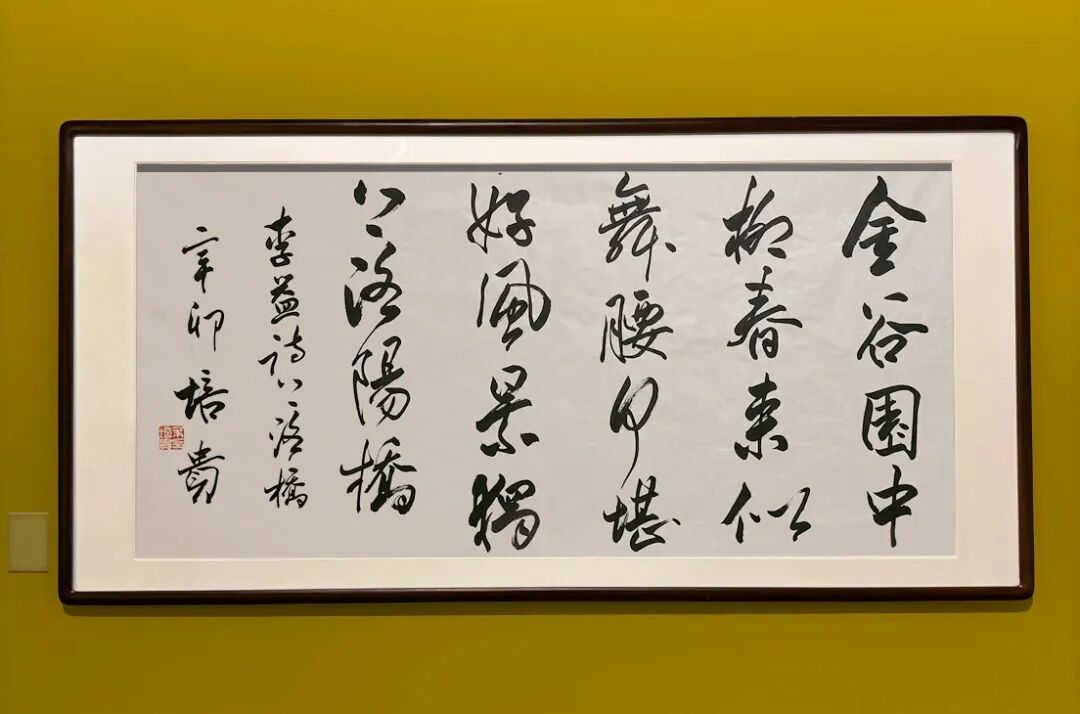 金谷園中
柳春来似
舞腰何堪
好風景獨
上洛陽橋
李益詩上洛橋
辛卯培貴